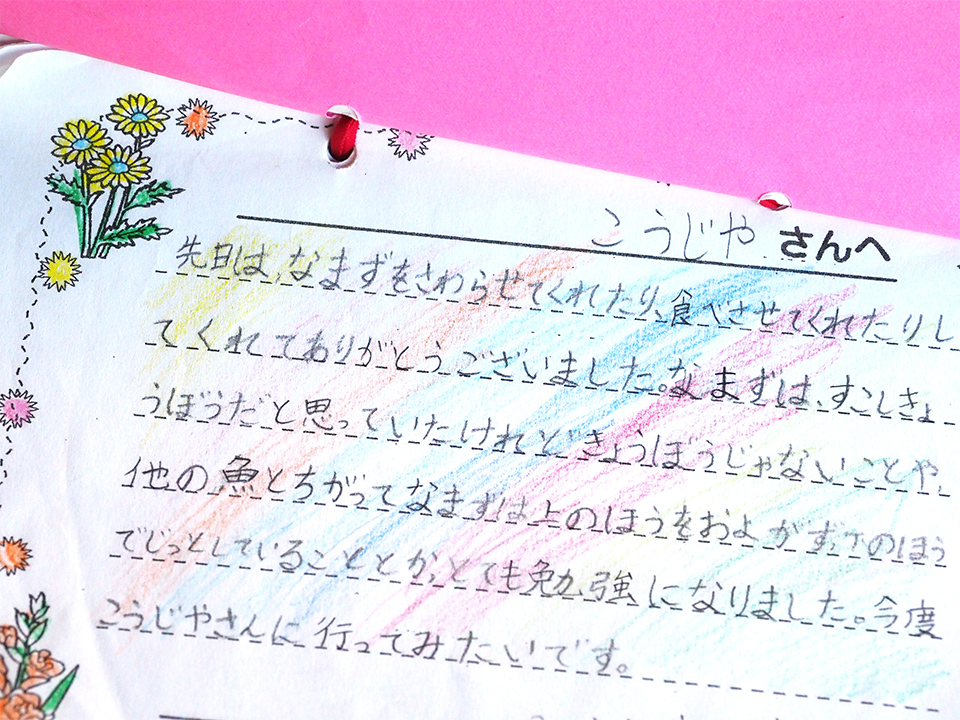 こうじや さんへ
先日は、なまずをさわらせてくれたり、食べさせてくれたりし
てくれてありがとうございました。なまずは、すこしきょ
うぼうだと思っていたけれどきょうぼうじゃないことや、
他の魚とちがってなまずは上のほうをおよがず、下のほう
でじっとしていることとか、とても勉強になりました。今度
こうじやさんに行ってみたいです。